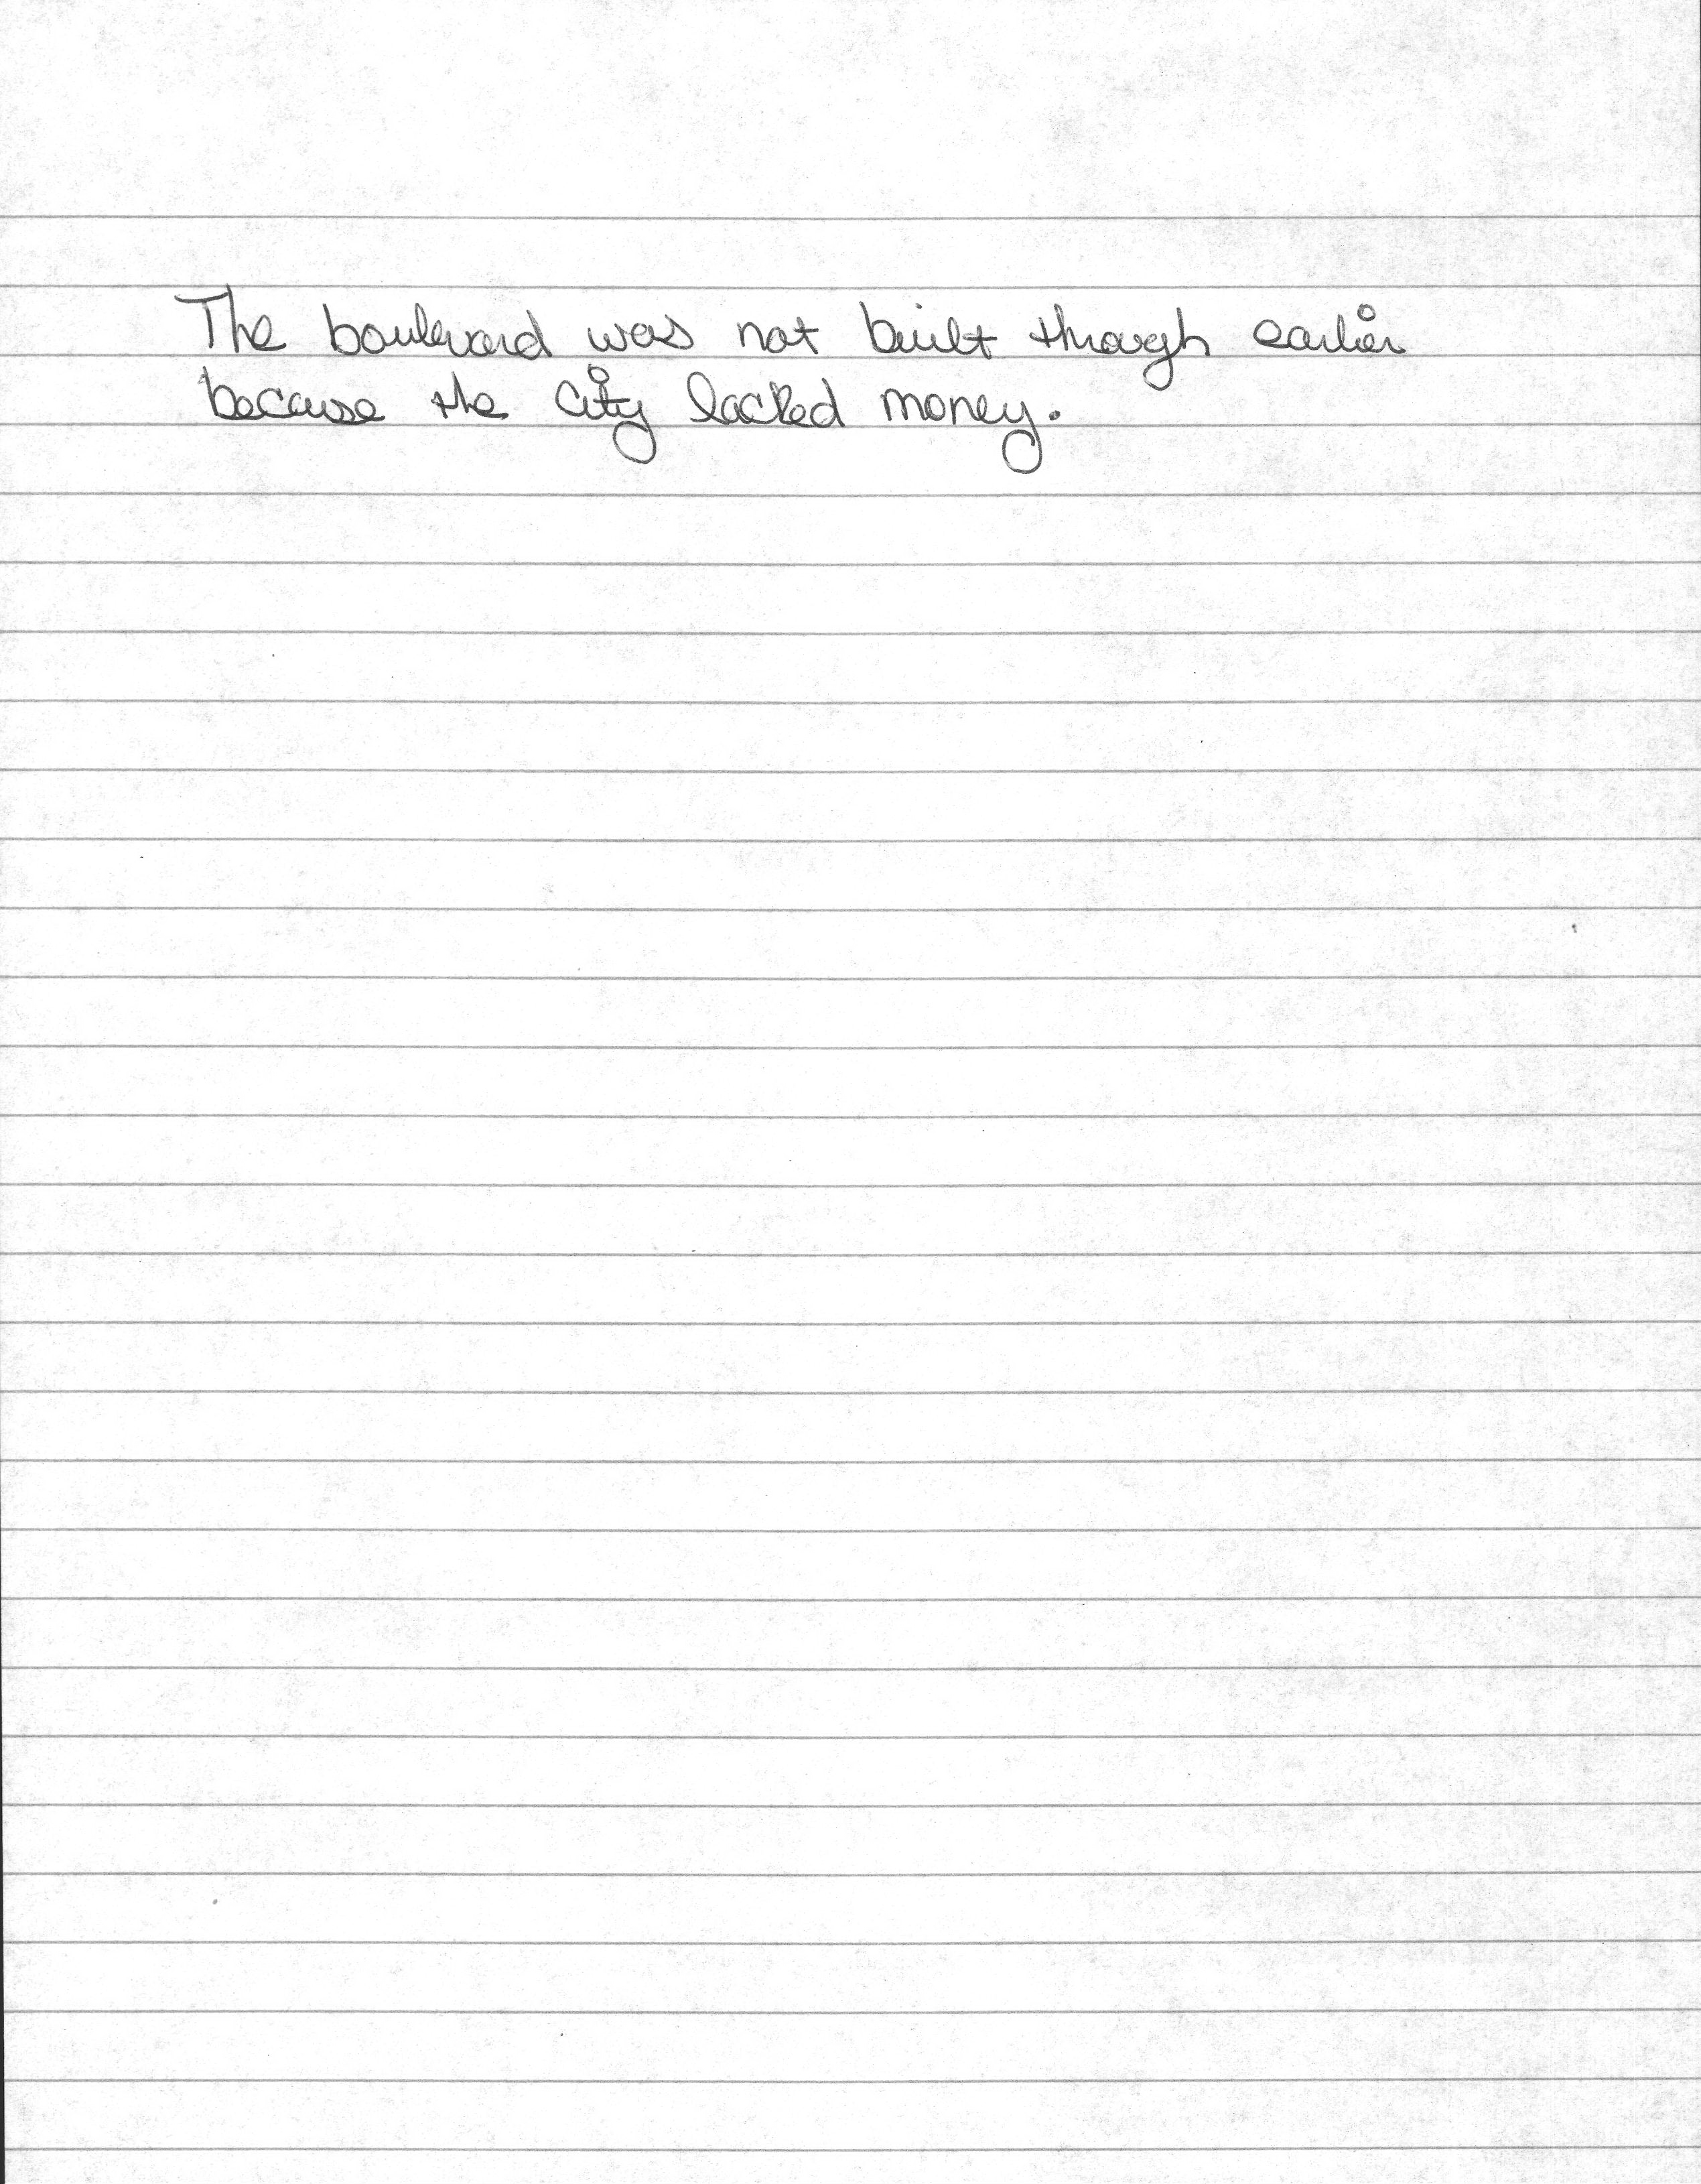 The boulevard was not built through earlier
because the city lacked money.